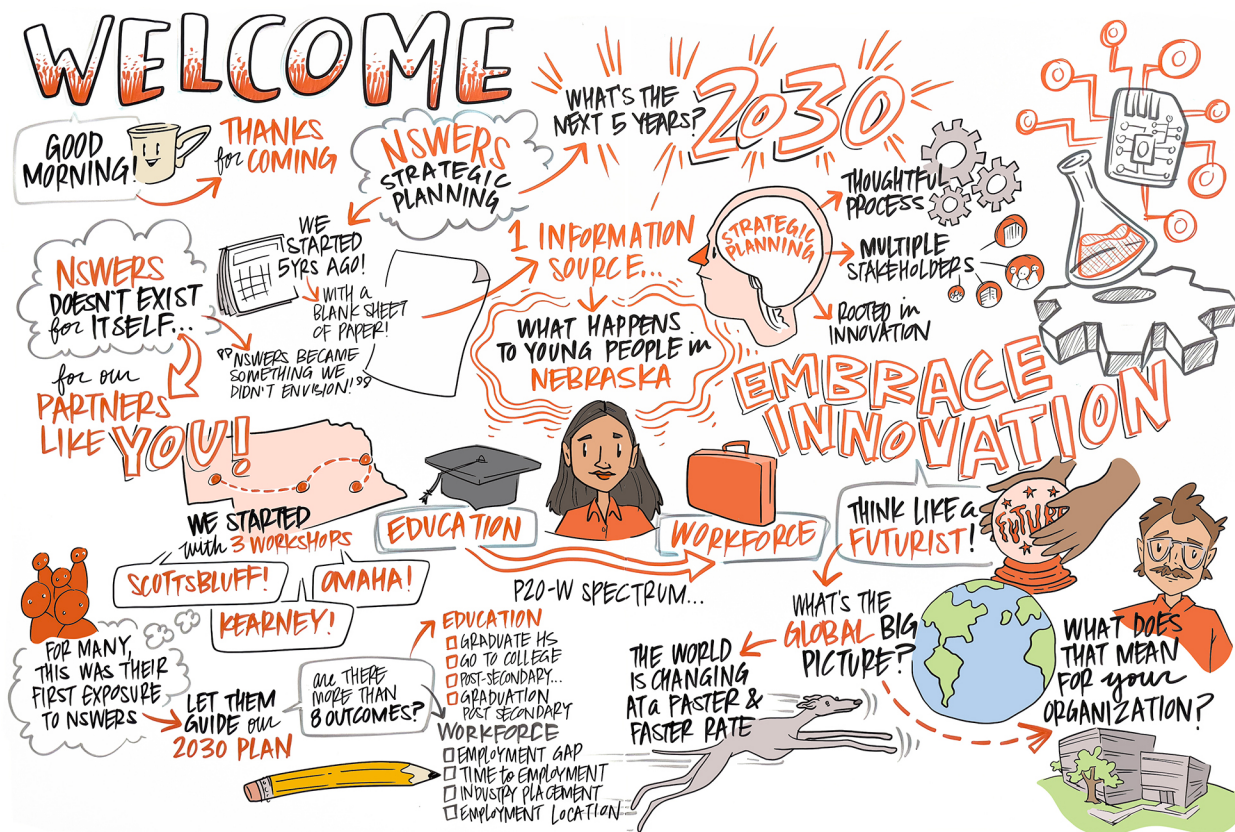 WELCOME
GOOD
MORNING!
THANKS
for COMING
NSWERS
STRATEGIC
PLANNING
WHAT'S THE
NEXT 5 YEARS?
2030
NSWERS
DOESN'T EXIST
for ITSELF...
for our
PARTNERS
LIKE YOU!
WE
STARTED
5YRS AGO!
WITH a
BLANK SHEET
OF PAPER!
"NSWERS BECAME
SOMETHING WE
DIDN'T ENVISION!"
1 INFORMATION
SOURCE...
WHAT HAPPENS
TO YOUNG PEOPLE in
NEBRASKA
STRATEGIC
PLANNING
THOUGHTFUL
PROCESS
MULTIPLE
STAKEHOLDERS
ROOTED in
INNOVATION
EMBRACE
INNOVATION
WE STARTED
with 3 WORKSHOPS
SCOTTSBLUFF!
OMAHA!
KEARNEY!
EDUCATION
WORKFORCE
P20-W SPECTRUM...
THINK LIKE a
FUTURIST!
FUTURE
FOR MANY,
THIS WAS THEIR
FIRST EXPOSURE
TO NSWERS
LET THEM
GUIDE our
2030 PLAN
are THERE
MORE THAN
8 OUTCOMES?
EDUCATION
GRADUATE HS
GO TO COLLEGE
POST-SECONDARY...
GRADUATION
POST SECONDARY
WORKFORCE
EMPLOYMENT GAP
TIME to EMPLOYMENT
INDUSTRY PLACEMENT
EMPLOYMENT LOCATION
THE WORLD
IS CHANGING
AT a FASTER &
FASTER RATE
WHAT'S THE
GLOBAL BIG
PICTURE?
WHAT DOES
THAT MEAN
FOR your
ORGANIZATION?